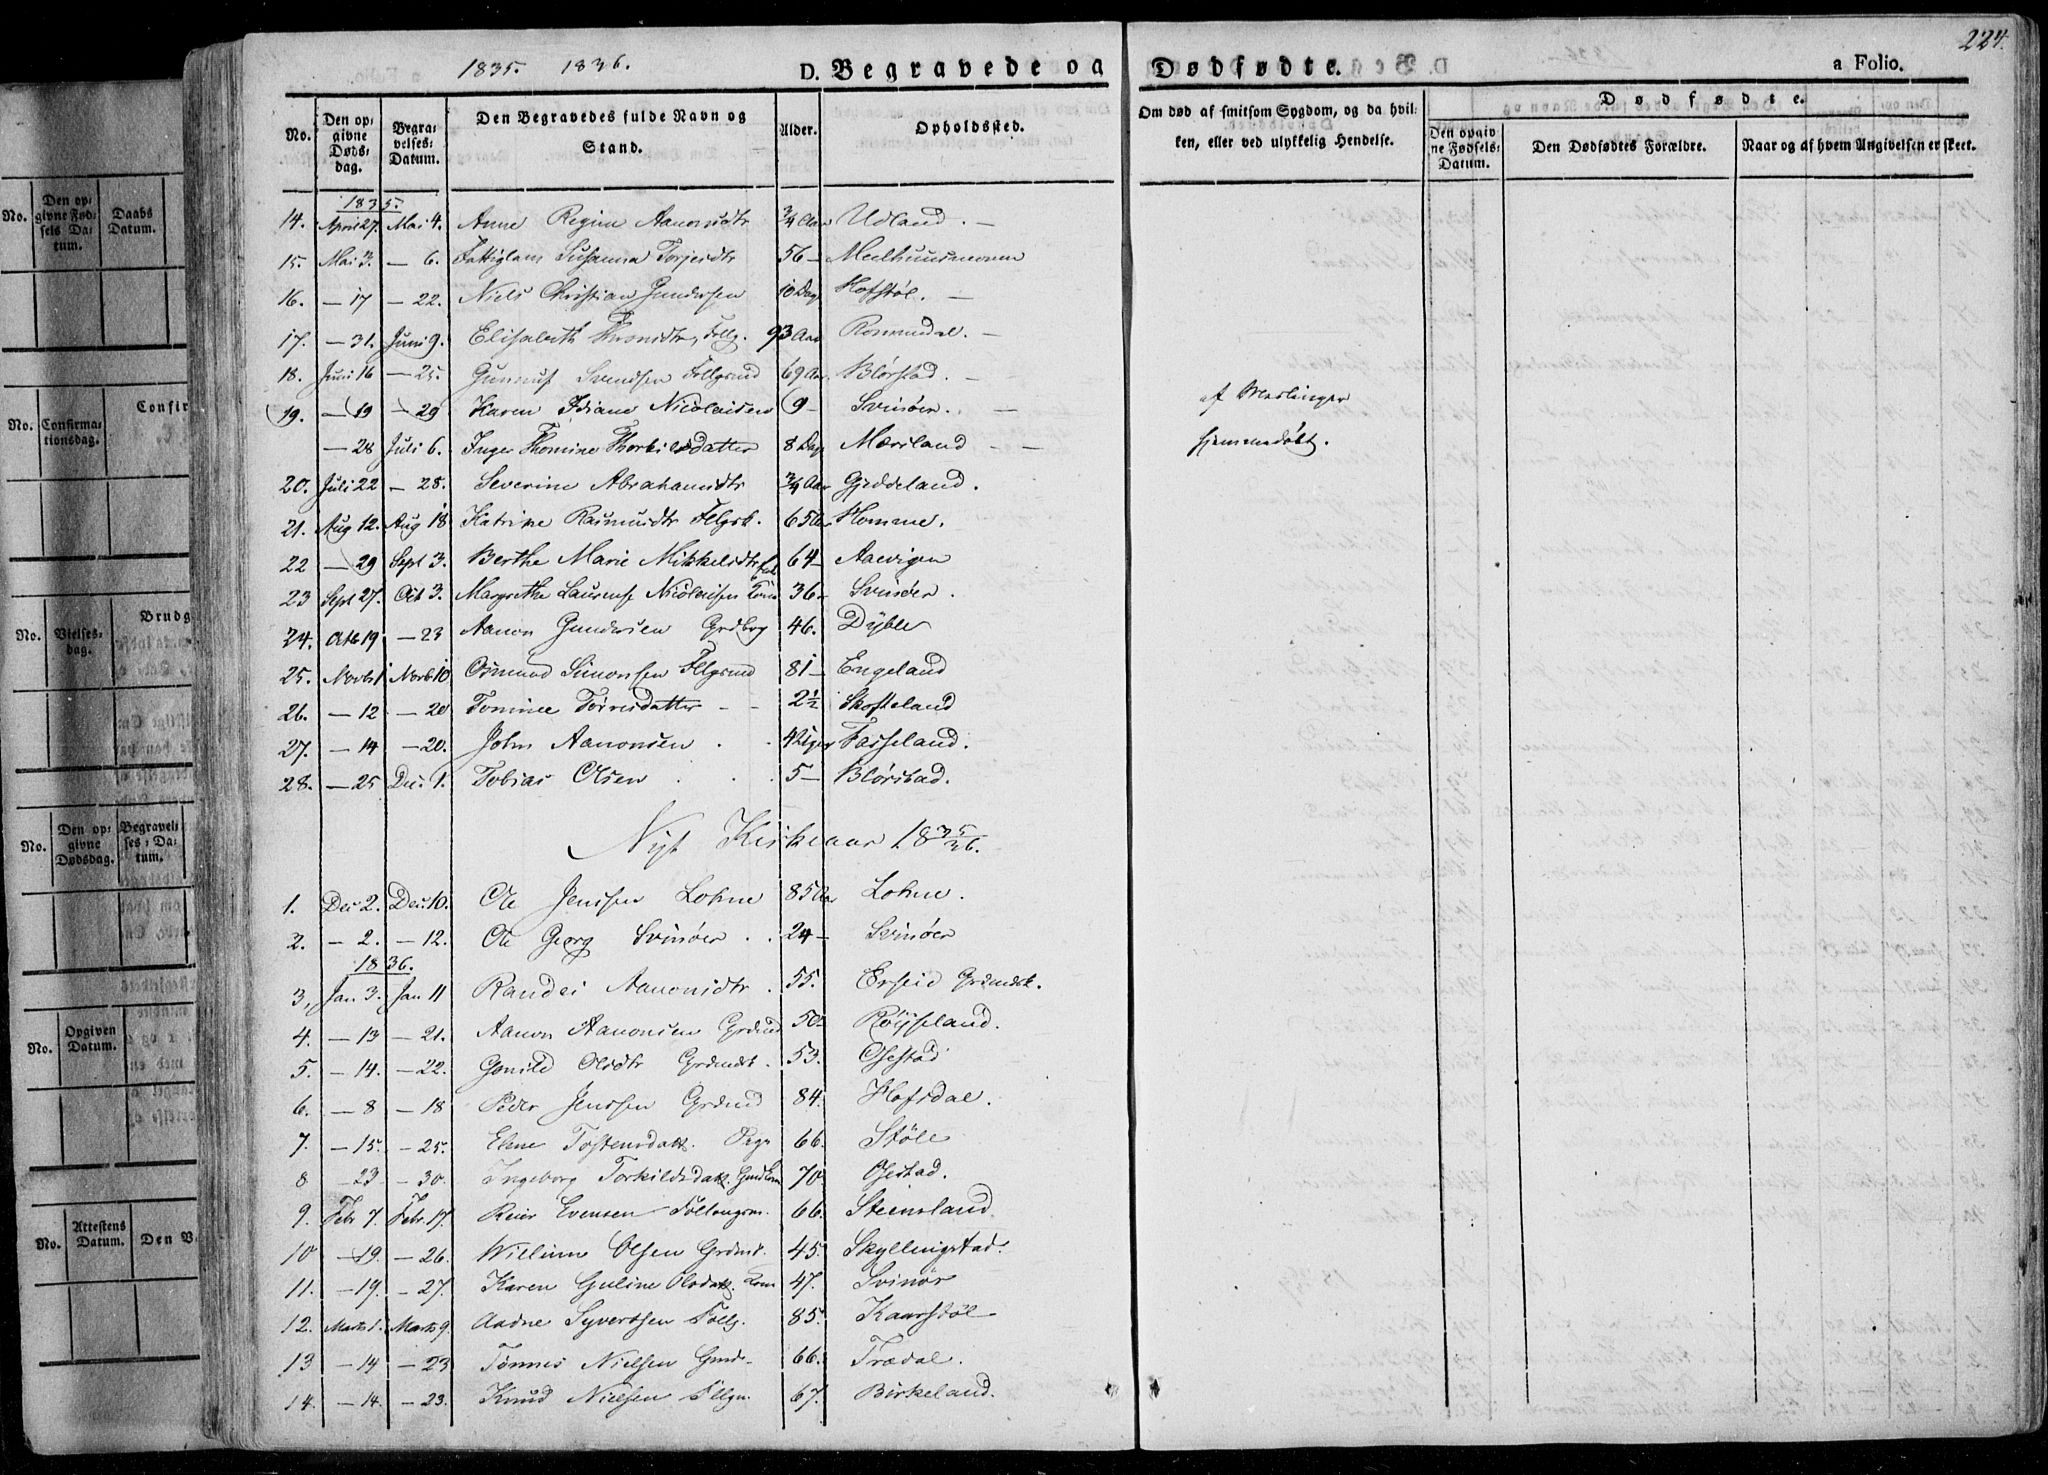 1835. 1836.
D. Begravede og Dødfødte.
a Folio. 224.
No. | Den opgivne Døds-dag. | Begravelses-Datum. | Den Begravedes fulde Navn og Stand. | Alder. | Opholdssted. | Om død af smitsom Sygdom, og da hvilken, eller ved ulykkelig Hendelse. | Dødfødte. | Den opgivne Fødsels-Datum. | Den Dødfødtes Forældre. | Naar og af hvem Angivelsen er skeet.
1835.
14. April 27. Mai 4. Anne Regine Aanonsdtr 3/4 Aar Udland. —
15. Mai 3. — 6. Fattiglem Susanna Torjesdtr 56 —
16. — 17 — 22. Niels Christian Gundersen 10 Dage Hofstøl. —
17. — 31. Juni 9. Elisabeth Thronsdtr, Follg. 93 Aar Rommedal. —
18. Juni 16 — 25. Gunnuf Svendsen Follgmd 69 Aar Blørstad. —
19. — 19 — 29 Karen Nicolaisen 9 — Svinøer. — af Meslinger
— 28 Juli 6. Inger Thomine Thorkildsdatter 8 Dage Mærsland — — hjemmedøbt.
20. Juli 22 — 28. Severine Abrahamsdtr 3/4 Aar Gjeddeland.
21. Aug 12. Aug 18 Katrine Rasmusdtr Fllgsk. 65 Aar Homme.
22 — 29 Sept 3. Berthe Marie Mikkelsdtr 64 — Aaevigen
23 Sept 27. Oct 3. Margrethe Laurense Nicolaisen Kone 36 — Svinøer.
24. Octb 19 — 23 Aanon Gundersen Grdbrg 46. Dyble
25. Novbr 1 Novbr. 10 Osmund Simonsen Fllgmd 81 — Engeland
26. — 12 — 20 Tomine Tørresdatter — — 2 1/2 Skofteland
27. — 14 — 20. John Aanonsen . . 4 Uger Fasseland.
28. — 25 Dec. 1. Tobias Olsen . . . 5 — Blørstad.
Nyt Kirkeaar 1835/36.
1. Dec 2. Dec. 10. Ole Jenssen Lohne 85 Aar Lohne.
2. — 2. — 12. Ole Georg Svinøer . . 24 — Svinøer
1836.
3, Jan 3. Jan 11 Randei Aanonsdtr . 55. Erseid Grdmdsk.
4. — 13 — 21. Aanon Aanonsen Grdmd 50. Røysseland.
5. — 14. — 22. Gonild Olsdtr Grdmdsk. 53. Osestad
6. — 8 — 18 Peder Jenssen Grdmd 84. Hofsdal.
7. — 15. — 25. Elene Tostensdatt. Pige 66. Støle
8 — 23 — 30. Ingeborg Torkildsdatt. Gmdkone 70 Osestad.
9. Febr 7. Febr. 17. Reier Evensen Føllougsm. 66. Steinsland.
10 — 19. — 26. Willum Olsen Grdmd. 45. Skyllingstad.
11. — 19. — 27. Karen Guline Olsdatt. Kone 47. Svinør
12. Marts 1. Marts 9. Aadne Syvertsen Follg. 85. Kaarstøl
13 — 14 — 23 Tønnes Nielsen Gmd. 66. Trædal.
14. — 14. — 23. Knud Nielsen Fllgm. 67. Birkeland.
No. | Den opgivne Fødsels Datum. | Daabs Datum.
No. | Confirmationsdag. | Confir
Brudg
No. | Vielses-dag.
No. | Den opgivne Dødsdag. | Begravelses-Datum.
No. | Opgiven Datum.
No. | Attestens Datum. | Den V